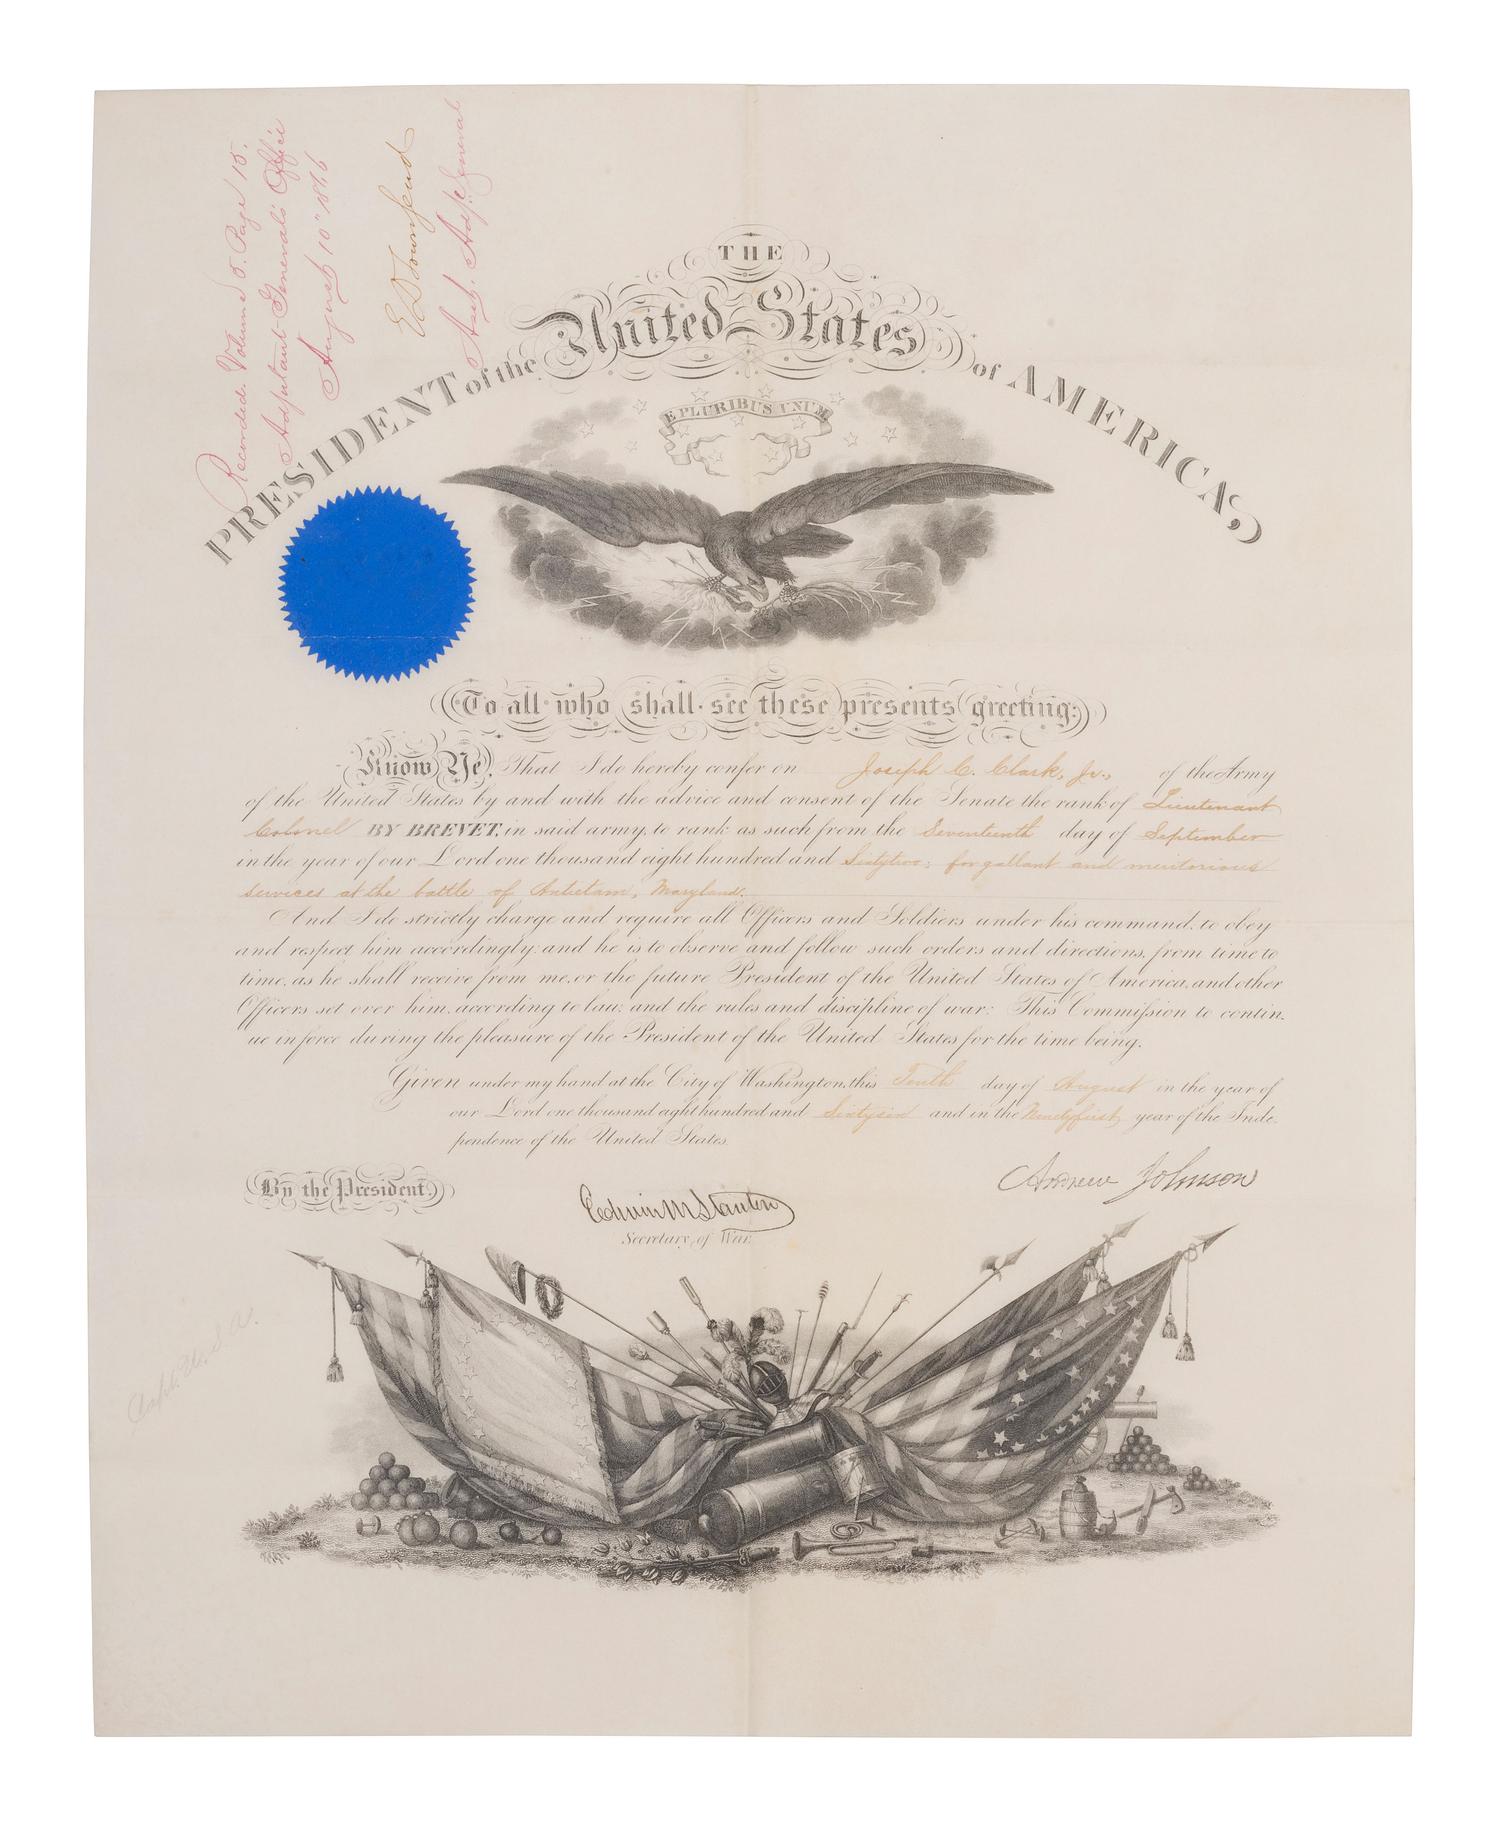 Recorded. Volume 5. Page 15.
Adjutant General's Office
August 10" 1866
E D Townsend
Asst. Adjt. General
THE
United States
PRESIDENT of the of AMERICA,
E PLURIBUS UNUM
To all who shall see these presents greeting:
Know Ye, That I do hereby confer on Joseph C. Clark, Jr., of the Army
of the United States by and with the advice and consent of the Senate the rank of Lieutenant
Colonel BY BREVET, in said army, to rank as such from the Seventeenth day of September
in the year of our Lord one thousand eight hundred and Sixtytwo: for gallant and meritorious
services at the battle of Antietam, Maryland.
And I do strictly charge and require all Officers and Soldiers under his command, to obey
and respect him accordingly: and he is to observe and follow such orders and directions, from time to
time, as he shall receive from me, or the future President of the United States of America, and other
Officers set over him, according to law, and the rules and discipline of war: This Commission to contin-
ue in force during the pleasure of the President of the United States for the time being.
Given under my hand at the City of Washington, this Tenth day of August in the year of
our Lord one thousand eight hundred and Sixtysix and in the Ninetyfirst year of the Inde-
pendence of the United States.
By the President,
Andrew Johnson
Edwin M Stanton
Secretary of War.
Capt. U.S.A.